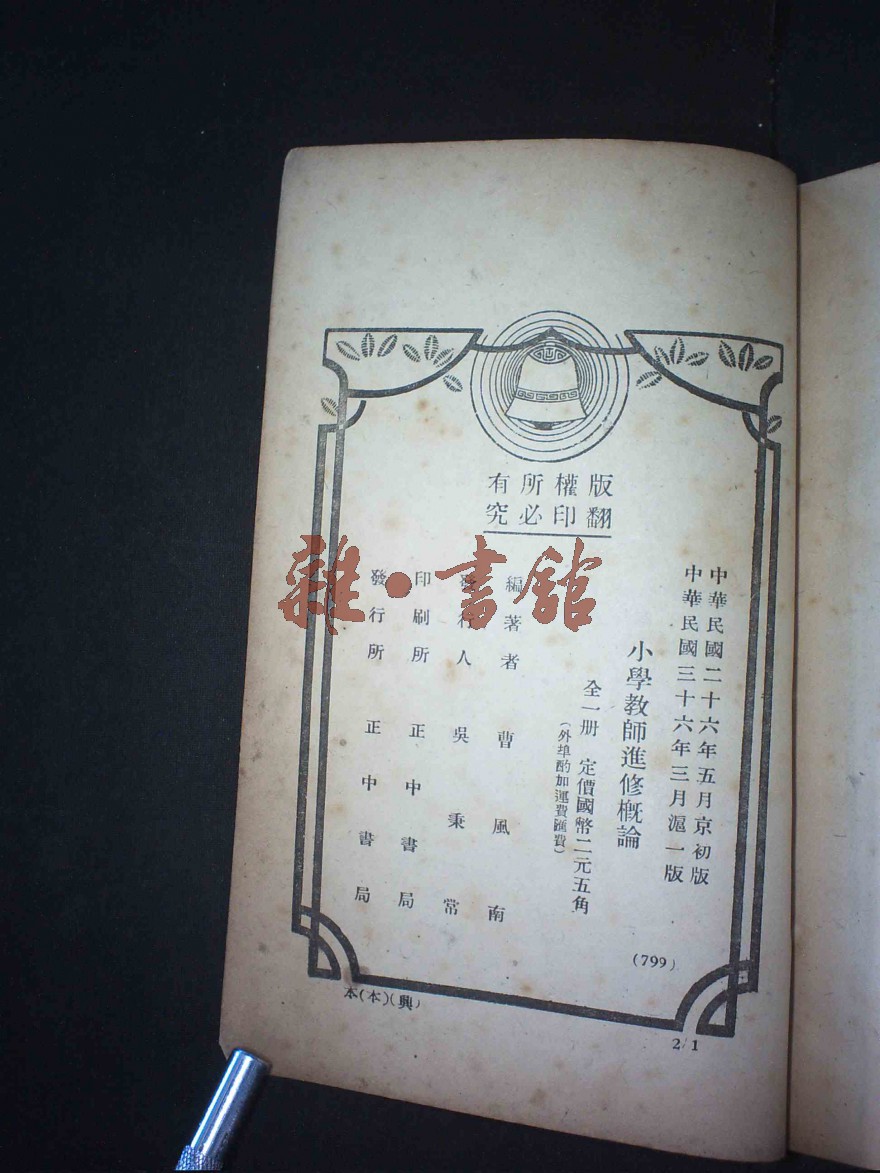 版權所有
翻印必究
中華民國二十六年五月京初版
中華民國三十六年三月滬一版
小學教師進修概論
全一册 定價國幣二元五角
(外埠酌加運費匯費)
編著者 曹風南
發行人 吳秉常
印刷所 正中書局
發行所 正中書局
(799)
本(本)(興)
2/1
雜·書館